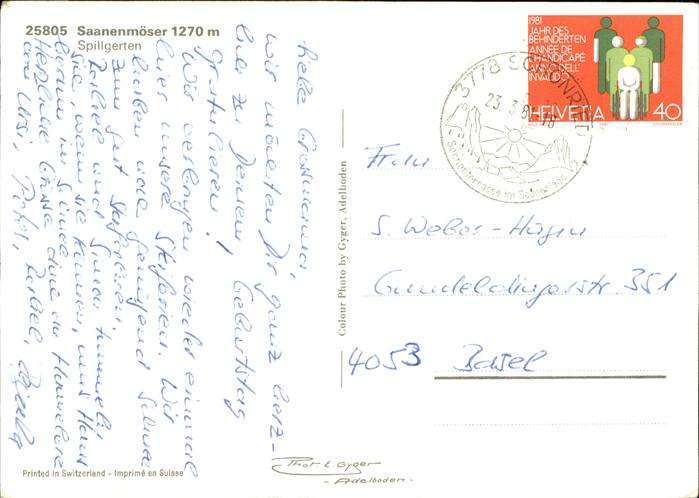 25805 Saanenmöser 1270 m
Spillgerten
Liebe Grossmama,
wir möchten Dir ganz herz-
lich zu Deinem Geburtstag
gratulieren!
Wir verbringen wieder einmal
hier unsere Skiferien. Wir
haben alle genügend Schnee
zum gut Skifahren.
und
sie, wenn sie können,
im
Herzliche Grüsse
Ursi, Peter,
Colour Photo by Gyger, Adelboden
1981
JAHR DES
BEHINDERTEN
ANNÉE DE
L'HANDICAPÉ
ANNO DELL'
INVALIDO
HELVETIA 40
3778 SCHÖNRIED
23.3.81-18
Sonnenterrasse im Saanenland
Frau
S. Weber-Hügin
Gundeldingerstr. 351
4053 Basel
Printed in Switzerland - Imprimé en Suisse
Phot. E. Gyger
-Adelboden-